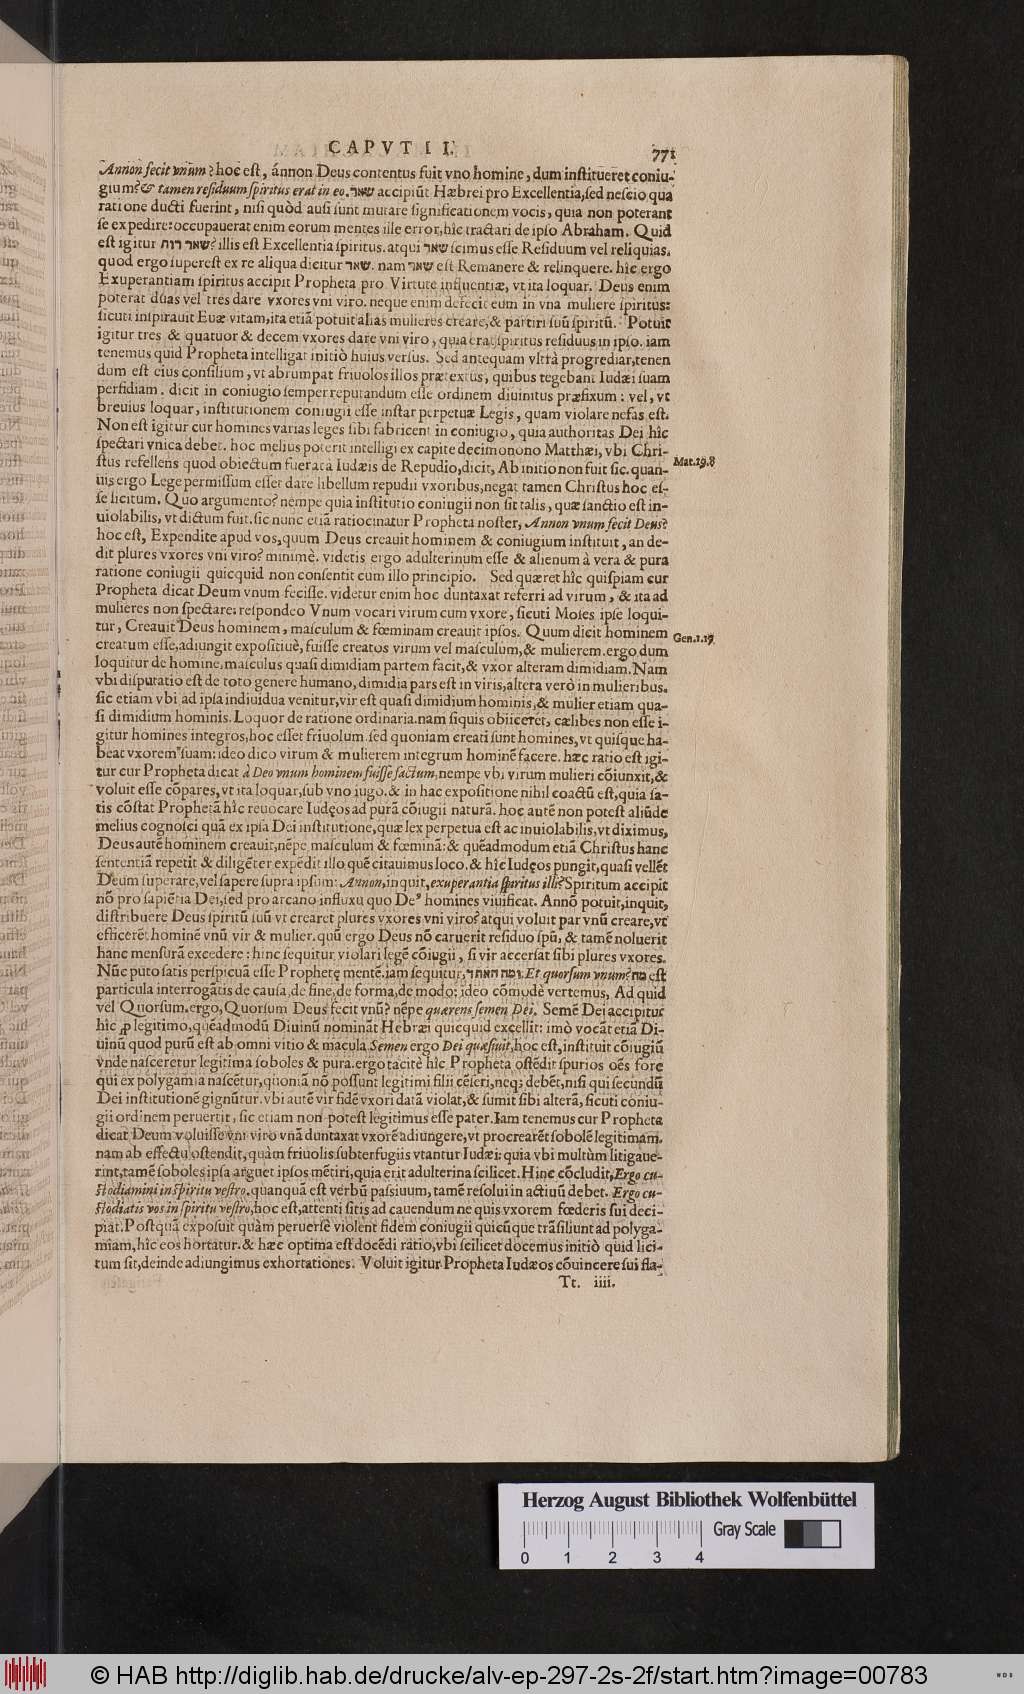 CAPVT II.
771
Annon fecit vnum? hoc est, ánnon Deus contentus fuit vno homine, dum institueret coniu-
gium? & tamen residuum spiritus erat in eo. שאר accipiūt Hæbrei pro Excellentia, sed nescio qua
ratione ducti fuerint, nisi quòd ausi sunt mutare significationem vocis, quia non poterant
se expedire: occupauerat enim eorum mentes ille error, hîc tractari de ipso Abraham. Quid
est igitur שאר רוח? illis est Excellentia spiritus. atqui שאר scimus esse Residuum vel reliquias.
quod ergo superest ex re aliqua dicitur שאר. nam שאר est Remanere & relinquere. hîc ergo
Exuperantiam spiritus accipit Propheta pro Virtute influentiæ, vt ita loquar. Deus enim
poterat duas vel tres dare vxores vni viro. neque enim defecit eum in vna muliere spiritus:
sicuti inspirauit Euæ vitam, ita etiā potuit alias mulieres creare, & partiri suū spiritū. Potuit
igitur tres & quatuor & decem vxores dare vni viro, quia erat spiritus residuus in ipso. iam
tenemus quid Propheta intelligat initiò huius versus. Sed antequam vltrà progrediar, tenen
dum est eius consilium, vt abrumpat friuolos illos prætextus, quibus tegebant Iudæi suam
perfidiam. dicit in coniugio semper reputandum esse ordinem diuinitus præfixum: vel, vt
breuius loquar, institutionem coniugii esse instar perpetuæ Legis, quam violare nefas est.
Non est igitur cur homines varias leges sibi fabricent in coniugio, quia authoritas Dei hîc
spectari vnica debet. hoc melius poterit intelligi ex capite decimonono Matthæi, vbi Chri-
stus refellens quod obiectum fuerat à Iudæis de Repudio, dicit, Ab initio non fuit sic. quan-
uis ergo Lege permissum esset dare libellum repudii vxoribus, negat tamen Christus hoc es-
se licitum. Quo argumento? nempe quia institutio coniugii non sit talis, quæ sanctio est in-
uiolabilis, vt dictum fuit. sic nunc etiā ratiocinatur Propheta noster, Annon vnum fecit Deus?
hoc est, Expendite apud vos, quum Deus creauit hominem & coniugium instituit, an de-
dit plures vxores vni viro? minimè. videtis ergo adulterinum esse & alienum à vera & pura
ratione coniugii quicquid non consentit cum illo principio. Sed quæret hîc quispiam cur
Propheta dicat Deum vnum fecisse. videtur enim hoc duntaxat referri ad virum, & ita ad
mulieres non spectare: respondeo Vnum vocari virum cum vxore, sicuti Moses ipse loqui-
tur, Creauit Deus hominem, masculum & fœminam creauit ipsos. Quum dicit hominem
creatum esse, adiungit expositiuè, fuisse creatos virum vel masculum, & mulierem. ergo dum
loquitur de homine, masculus quasi dimidiam partem facit, & vxor alteram dimidiam. Nam
vbi disputatio est de toto genere humano, dimidia pars est in viris, altera verò in mulieribus.
sic etiam vbi ad ipsa indiuidua venitur, vir est quasi dimidium hominis, & mulier etiam qua-
si dimidium hominis. Loquor de ratione ordinaria. nam siquis obiiceret, cælibes non esse i-
gitur homines integros, hoc esset friuolum. sed quoniam creati sunt homines, vt quisque ha-
beat vxorem suam: ideo dico virum & mulierem integrum hominē facere. hæc ratio est igi-
tur cur Propheta dicat à Deo vnum hominem fuisse factum, nempe vbi virum mulieri cōiunxit, &
voluit esse cōpares, vt ita loquar, sub vno iugo. & in hac expositione nihil coactū est, quia sa-
tis cōstat Prophetā hîc reuocare Iudęos ad purā cōiugii naturā. hoc autē non potest aliūde
melius cognosci quā ex ipsa Dei institutione, quæ lex perpetua est ac inuiolabilis, vt diximus,
Deus autē hominem creauit, nēpe masculum & fœminā: & quēadmodum etiā Christus hanc
sententiā repetit & diligēter expēdit illo quē citauimus loco. & hîc Iudęos pungit, quasi vellēt
Deum superare, vel sapere supra ipsum: Annon, inquit, exuperantia spiritus illi? Spiritum accipit
nō pro sapiētia Dei, sed pro arcano influxu quo De⁹ homines viuificat. Annō potuit, inquit,
distribuere Deus spiritū suū vt crearet plures vxores vni viro? atqui voluit par vnū creare, vt
efficerēt hominē vnū vir & mulier. quū ergo Deus nō caruerit residuo spū, & tamē noluerit
hanc mensurā excedere: hinc sequitur violari legē cōiugii, si vir accersat sibi plures vxores.
Nūc puto satis perspicuā esse Prophetę mentē. iam sequitur, ומה האחד. Et quorsum vnum? מה est
particula interrogātis de causa, de fine, de forma, de modo: ideo cōmodè vertemus, Ad quid
vel Quorsum. ergo, Quorsum Deus fecit vnū? nēpe quærens semen Dei. Semē Dei accipitur
hîc ꝓ legitimo, quēadmodū Diuinū nomināt Hebræi quicquid excellit: imò vocāt etiā Di-
uinū quod purū est ab omni vitio & macula. Semen ergo Dei quæsiuit, hoc est, instituit cōiugiū
vnde nasceretur legitima soboles & pura. ergo tacitè hîc Propheta ostēdit spurios oēs fore
qui ex polygamia nascētur, quoniā nō possunt legitimi filii cēseri, neq; debēt, nisi qui secundū
Dei institutionē gignūtur. vbi autē vir fidē vxori datā violat, & sumit sibi alterā, sicuti coniu-
gii ordinem peruertit, sic etiam non potest legitimus esse pater. Iam tenemus cur Propheta
dicat Deum voluisse vni viro vnā duntaxat vxorē adiungere, vt procrearēt sobolē legitimam.
nam ab effectu ostendit, quàm friuolis subterfugiis vtantur Iudæi: quia vbi multùm litigaue-
rint, tamē soboles ipsa arguet ipsos mētiri, quia erit adulterina scilicet. Hinc cōcludit, Ergo cu-
stodiamini in spiritu vestro. quanquā est verbū passiuum, tamē resolui in actiuū debet. Ergo cu-
stodiatis vos in spiritu vestro, hoc est, attenti sitis ad cauendum ne quis vxorem fœderis sui deci-
piat. Postquā exposuit quàm peruersè violent fidem coniugii quicūque trāsiliunt ad polyga-
miam, hîc eos hortatur. & hæc optima est docēdi ratio, vbi scilicet docemus initiò quid lici-
tum sit, deinde adiungimus exhortationes. Voluit igitur Propheta Iudæos cōuincere sui fla-
Tt. iiii.
Mat.19.8
Gen.1.19
Herzog August Bibliothek Wolfenbüttel
Gray Scale
0 1 2 3 4
© HAB http://diglib.hab.de/drucke/alv-ep-297-2s-2f/start.htm?image=00783
WDB